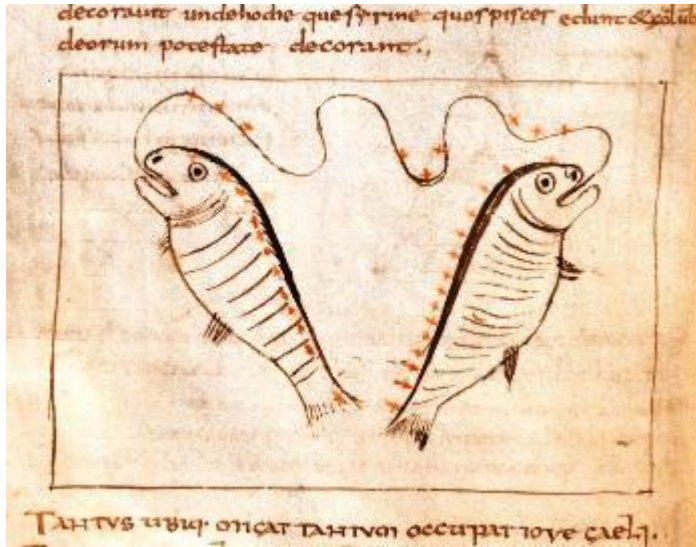 decoraunt unde hodie que syrine quos pisces edunt & colub
deorum potestate decorant.,
TANTUS ubiq. oncat TANTUM OCCUPAT IOVE CAELI.